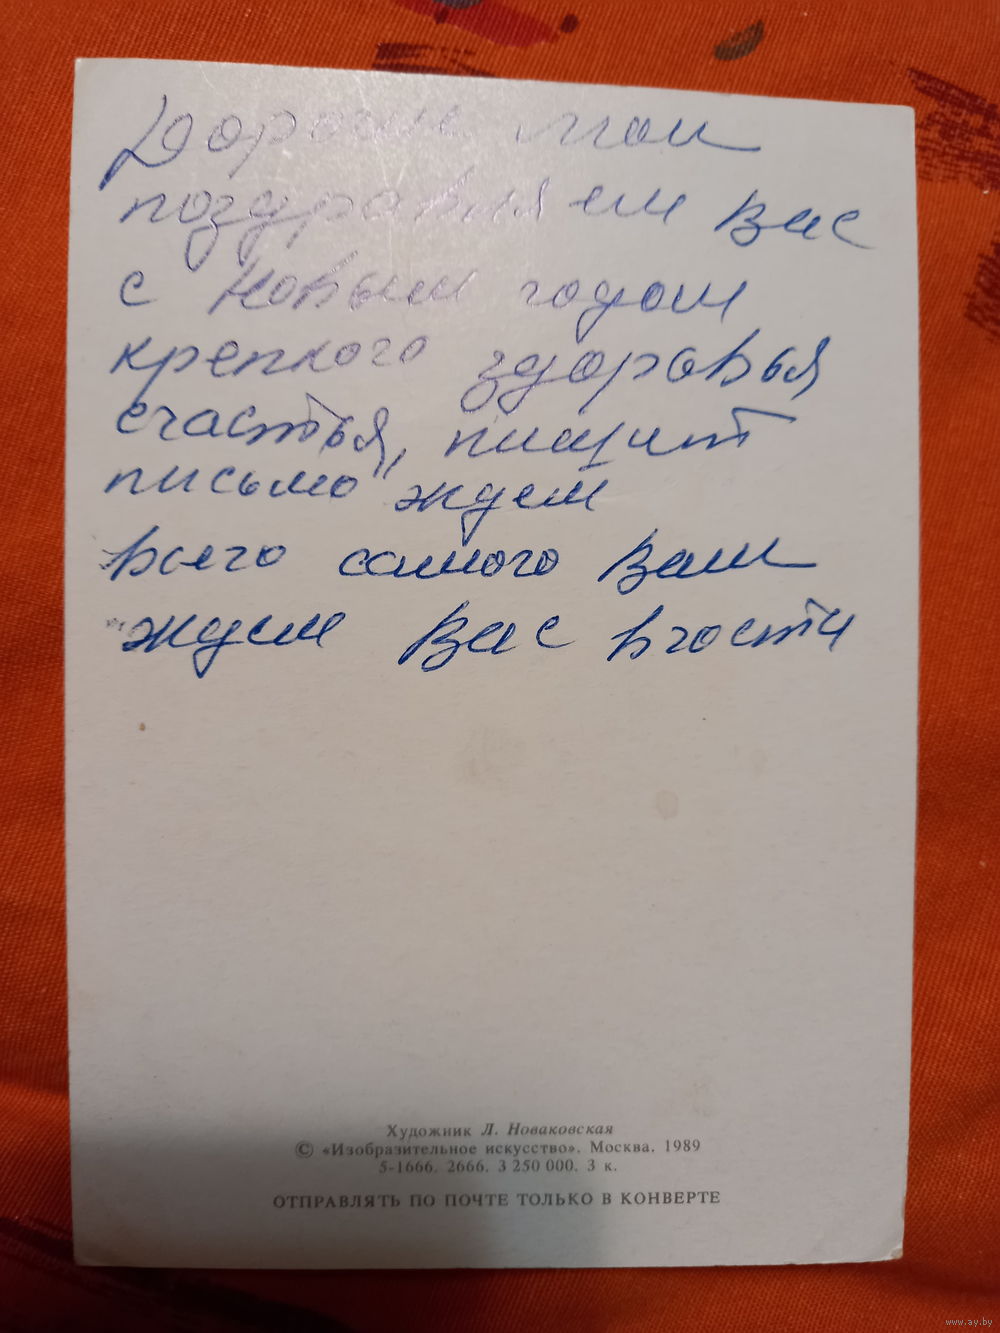 Дорогие мои
поздравляем Вас
с новым годом
крепкого здоровья
счастья, пишит
письмо ждем
всего самого Вам
ждем Вас вгости
Художник Л. Новаковская
© «Изобразительное искусство». Москва. 1989
5-1666. 2666. 3 250 000. 3 к.
ОТПРАВЛЯТЬ ПО ПОЧТЕ ТОЛЬКО В КОНВЕРТЕ
www.ay.by